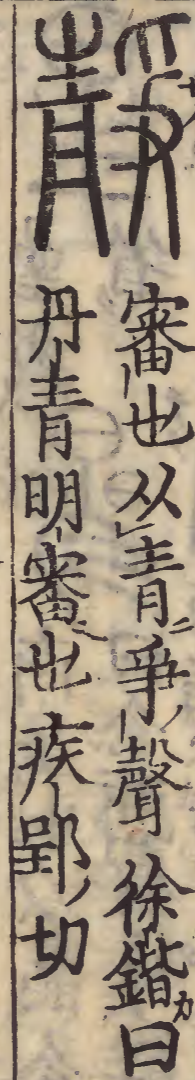 靜
審也从青爭聲 徐鍇曰
丹青明審也 疾郢切